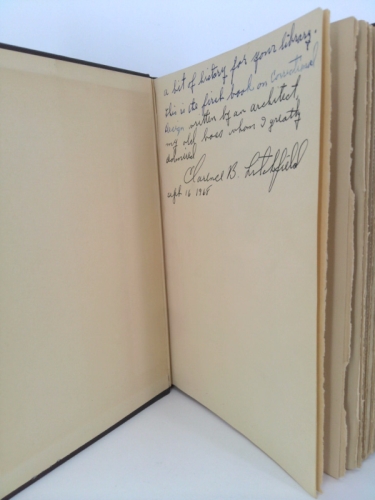 a bit of history for your library.
This is the first book on Correctional
Design written by an architect,
my old boss whom I greatly
admired
Clarence B. Litchfield
Sept 16 1968